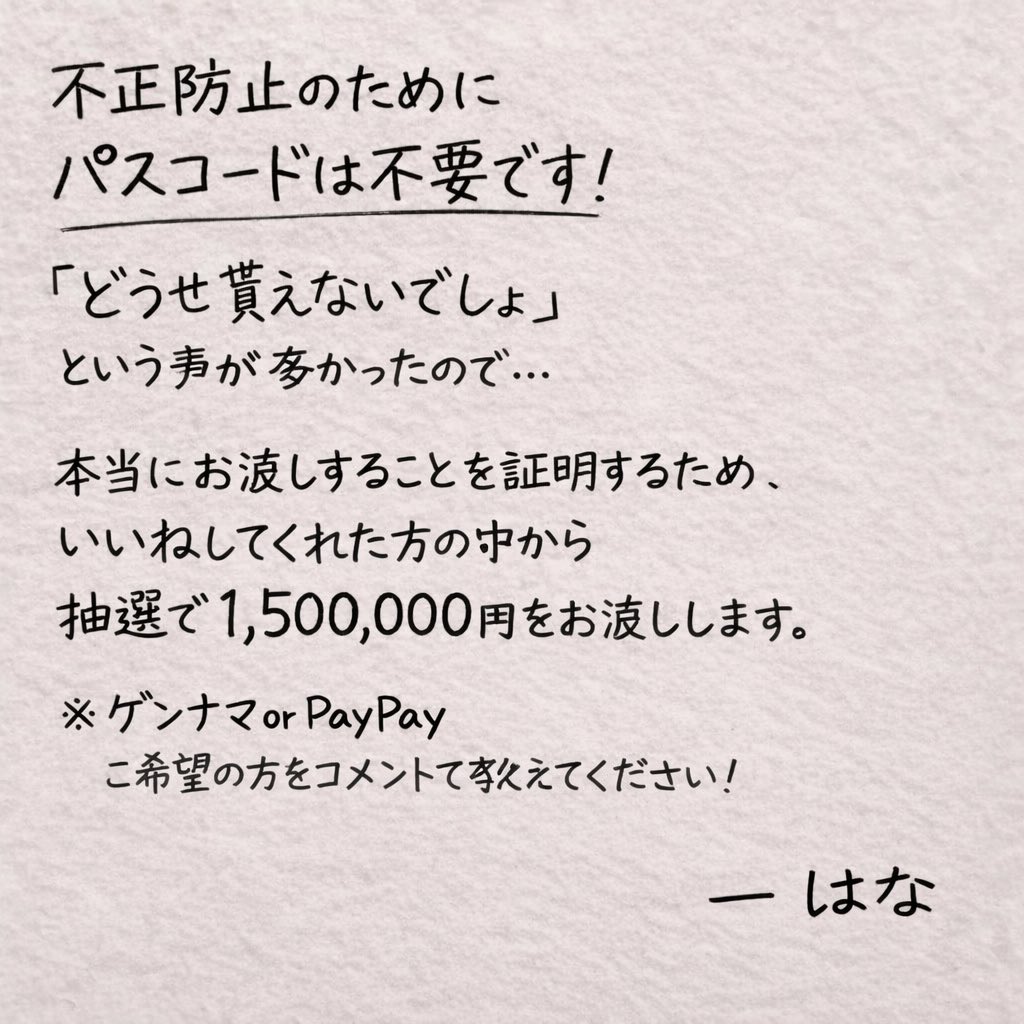 不正防止のために
パスコードは不要です!
「どうせ貰えないでしょ」
という声が多かったので…
本当にお渡しすることを証明するため、
いいねしてくれた方の中から
抽選で1,500,000円をお渡しします。
※ ゲンナマ or PayPay
ご希望の方をコメントで教えてください!
― はな